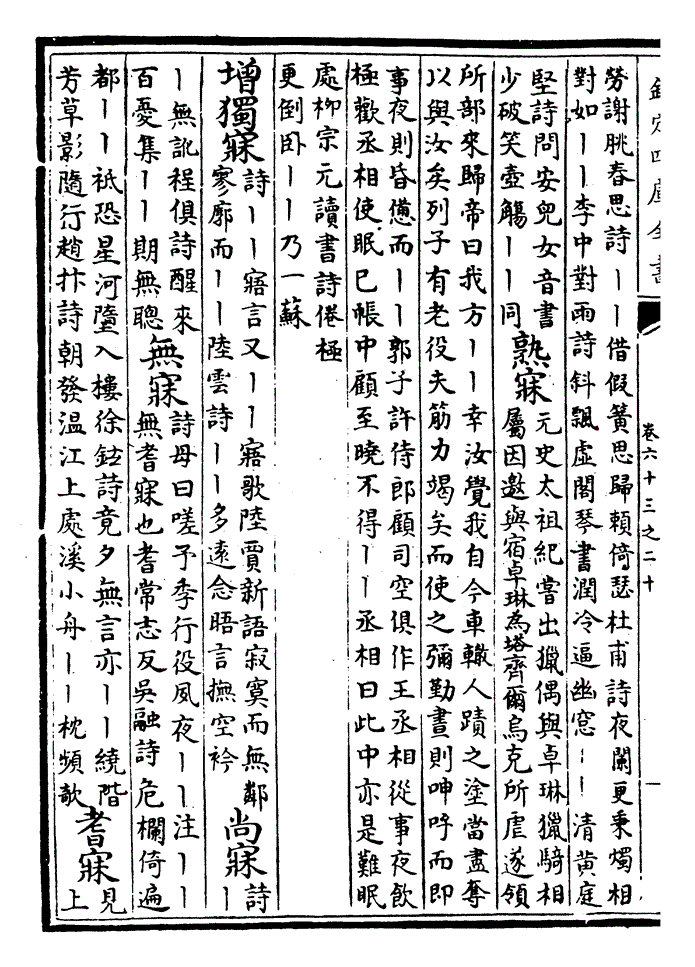 欽定四庫全書
卷六十三之二十
勞謝朓春思詩丨丨借假簧思歸賴倚瑟杜甫詩夜闌更秉燭相
對如丨丨李中對雨詩斜飄虛閣琴書潤冷逼幽窓丨丨清黃庭
堅詩問安兒女音書
少破笑壺觴丨丨同
熟寐
元史太祖紀嘗出獵偶與卓琳獵騎相
屬因邀與宿卓琳為塔齊爾烏克所虐遂領
所部來歸帝曰我方丨丨幸汝覺我自今車轍人蹟之塗當盡奪
以與汝矣列子有老役夫筋力竭矣而使之彌勤晝則呻呼而即
事夜則昏憊而丨丨郭子許侍郎顧司空俱作王丞相從事夜飲
極歡丞相使眠已帳中顧至曉不得丨丨丞相曰此中亦是難眠
處柳宗元讀書詩倦極
更倒卧丨丨乃一蘇
增獨寐
詩丨丨寤言又丨丨寤歌陸賈新語寂寞而無鄰
寥廓而丨丨陸雲詩丨丨多遠念晤言撫空衿
尚寐
詩丨
丨無訛程俱詩醒來
百憂集丨丨期無聰
無寐
詩母曰嗟予季行役夙夜丨丨注丨丨
無耆寐也耆常志反吳融詩危欄倚遍
都丨丨祇恐星河墮入樓徐鉉詩竟夕無言亦丨丨繞階
芳草影隨行趙抃詩朝發温江上處溪小舟丨丨枕頻欹
耆寐
見
上